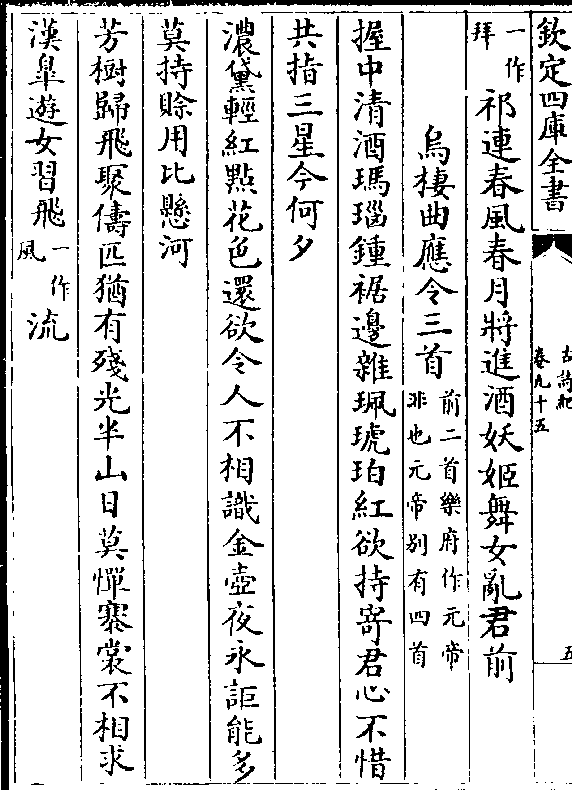 欽定四庫全書
古詩紀
卷九十五
五
一作拜祁連春風春月將進酒妖姬舞女亂君前
烏棲曲應令三首前二首樂府作元帝非也元帝别有四首
握中清酒瑪瑙鍾裾邊雜珮琥珀紅欲持寄君心不惜
共指三星今何夕
濃黛輕紅點花色還欲令人不相識金壺夜永詎能多
莫持賖用比懸河
芳樹歸飛聚儔匹猶有殘光半山日莫憚褰裳不相求
漢臯遊女習飛一作風流